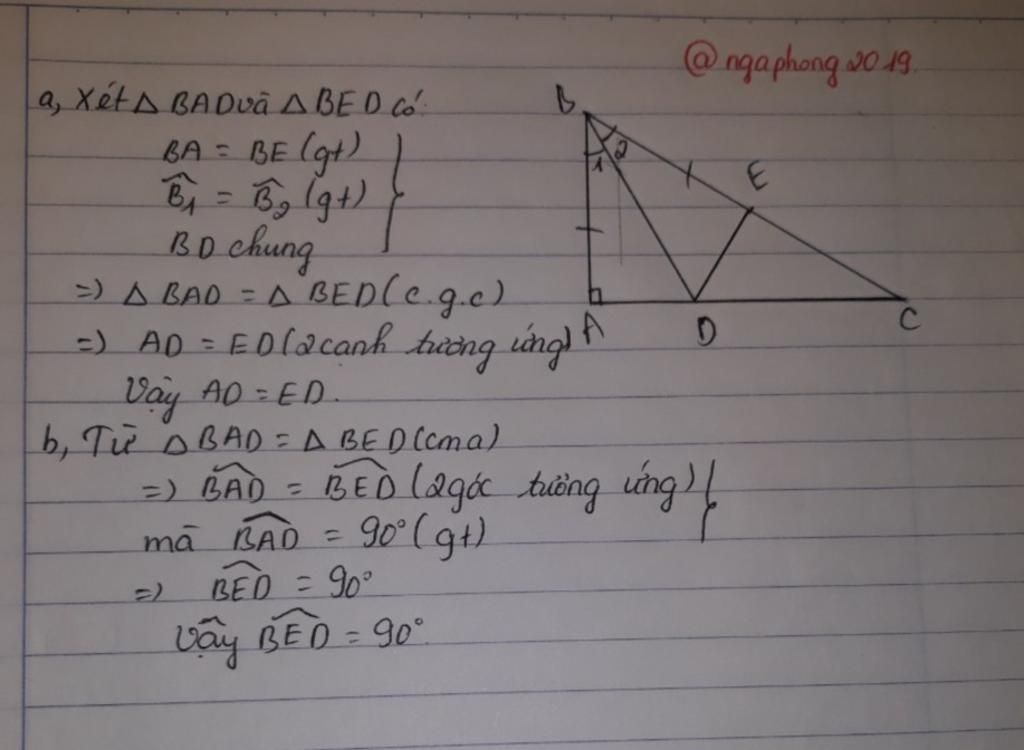 @ngaphong2019
a, Xét △BAD và △BED có:
BA = BE (gt)
B̂1 = B̂2 (gt)
BD chung
=> △BAD = △BED (c.g.c)
=> AD = ED (2 cạnh tương ứng)
Vậy AD = ED.
b, Từ △BAD = △BED (cma)
=> B͡AD = B͡ED (2 góc tương ứng)
mà B͡AD = 90° (gt)
=> B͡ED = 90°
Vậy B͡ED = 90°.
B
1 2
E
A
D
C